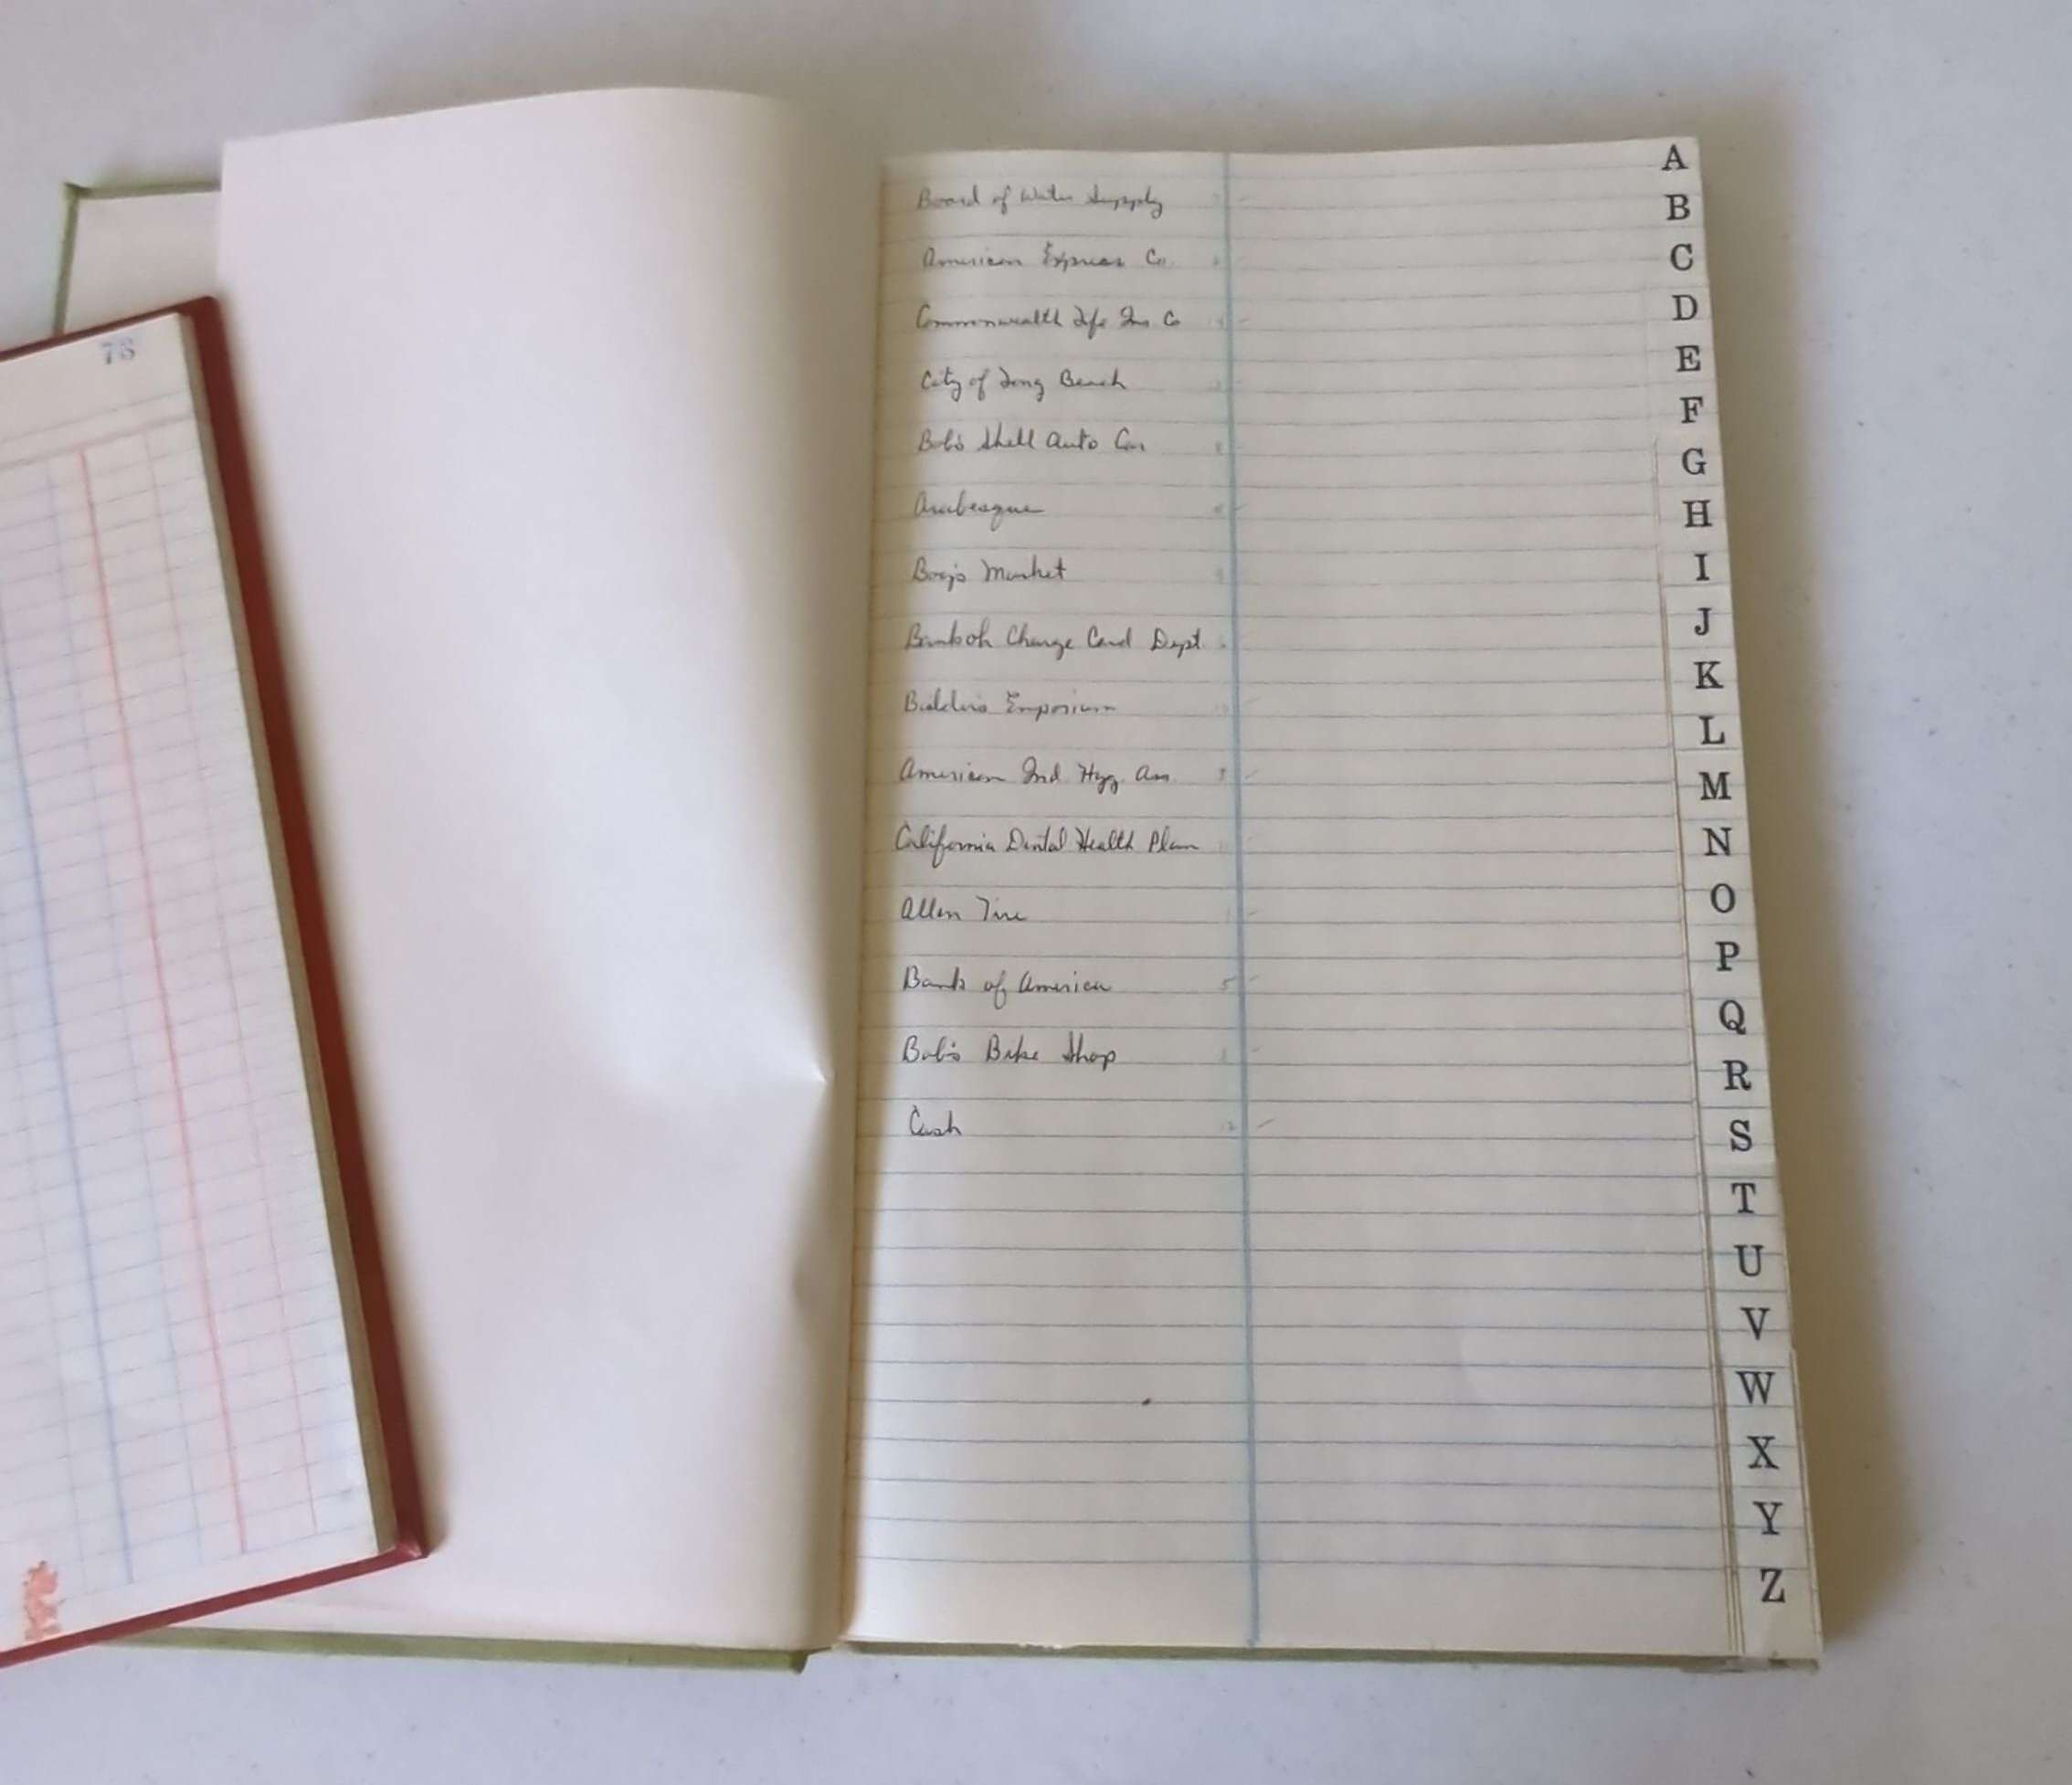 76
Board of Water Supply
American Express Co.
Commonwealth Life Ins. Co
City of Long Beach
Bob's Shell Auto Car
Arabesque
Market
Bankoh Charge Card Dept.
Builders Emporium
American Ind Hyg. Ass
California Dental Health Plan
Allen Tire
Bank of America 5
Bob's Bike Shop
Cash 12
A
B
C
D
E
F
G
H
I
J
K
L
M
N
O
P
Q
R
S
T
U
V
W
X
Y
Z